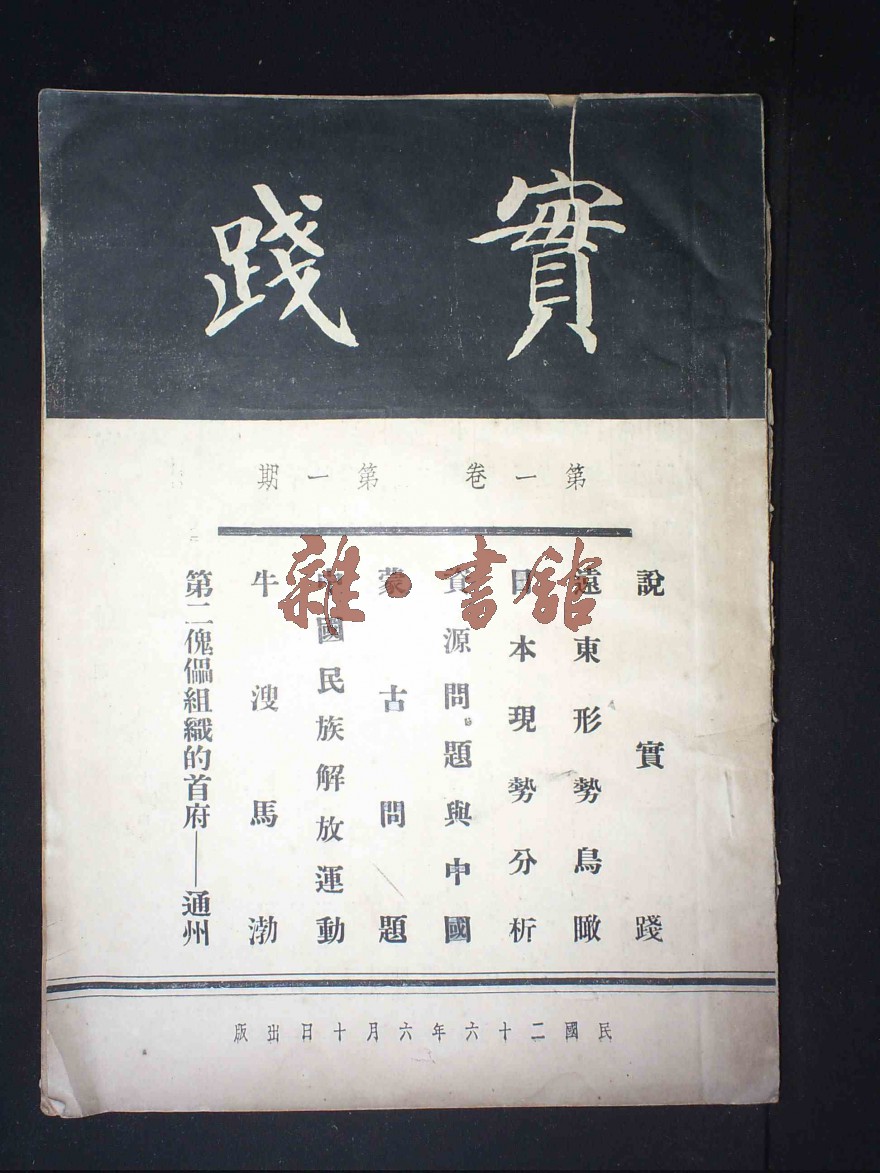 實踐
第一卷 第一期
說實踐
遠東形勢鳥瞰
日本現勢分析
資源問題與中國
蒙古問題
中國民族解放運動
牛溲馬渤
第二傀儡組織的首府——通州
民國二十六年六月十日出版
雜·書館